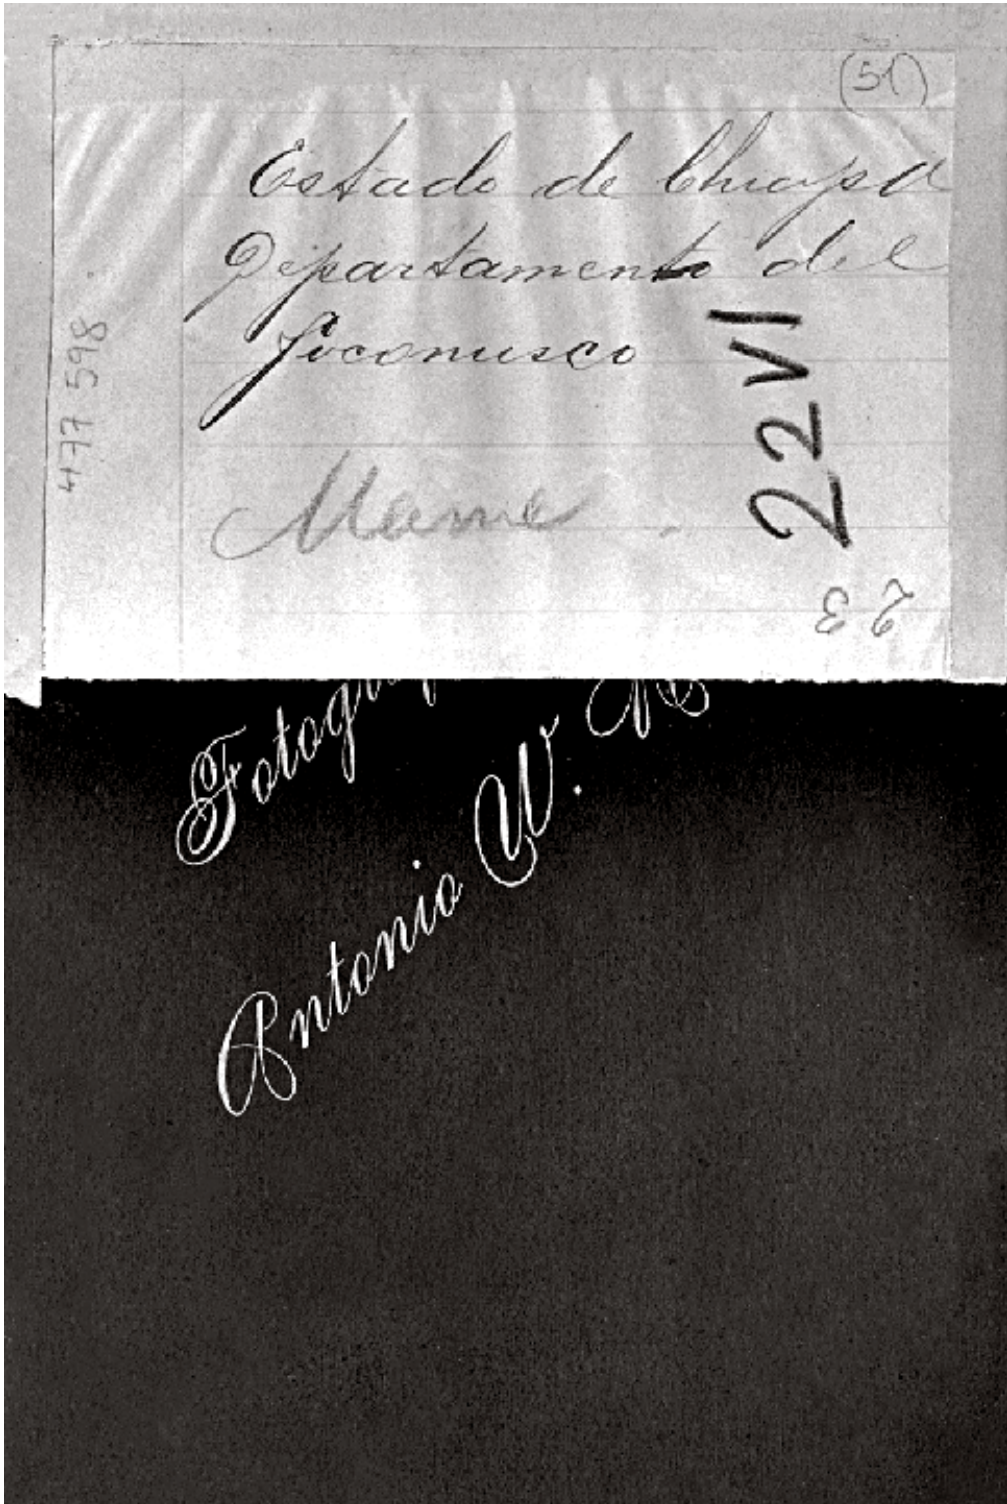 (51)
Estado de Chiapa
Departamento del
Soconusco
Mame
22 VI
23
477598
Fotogra
Antonio W. R